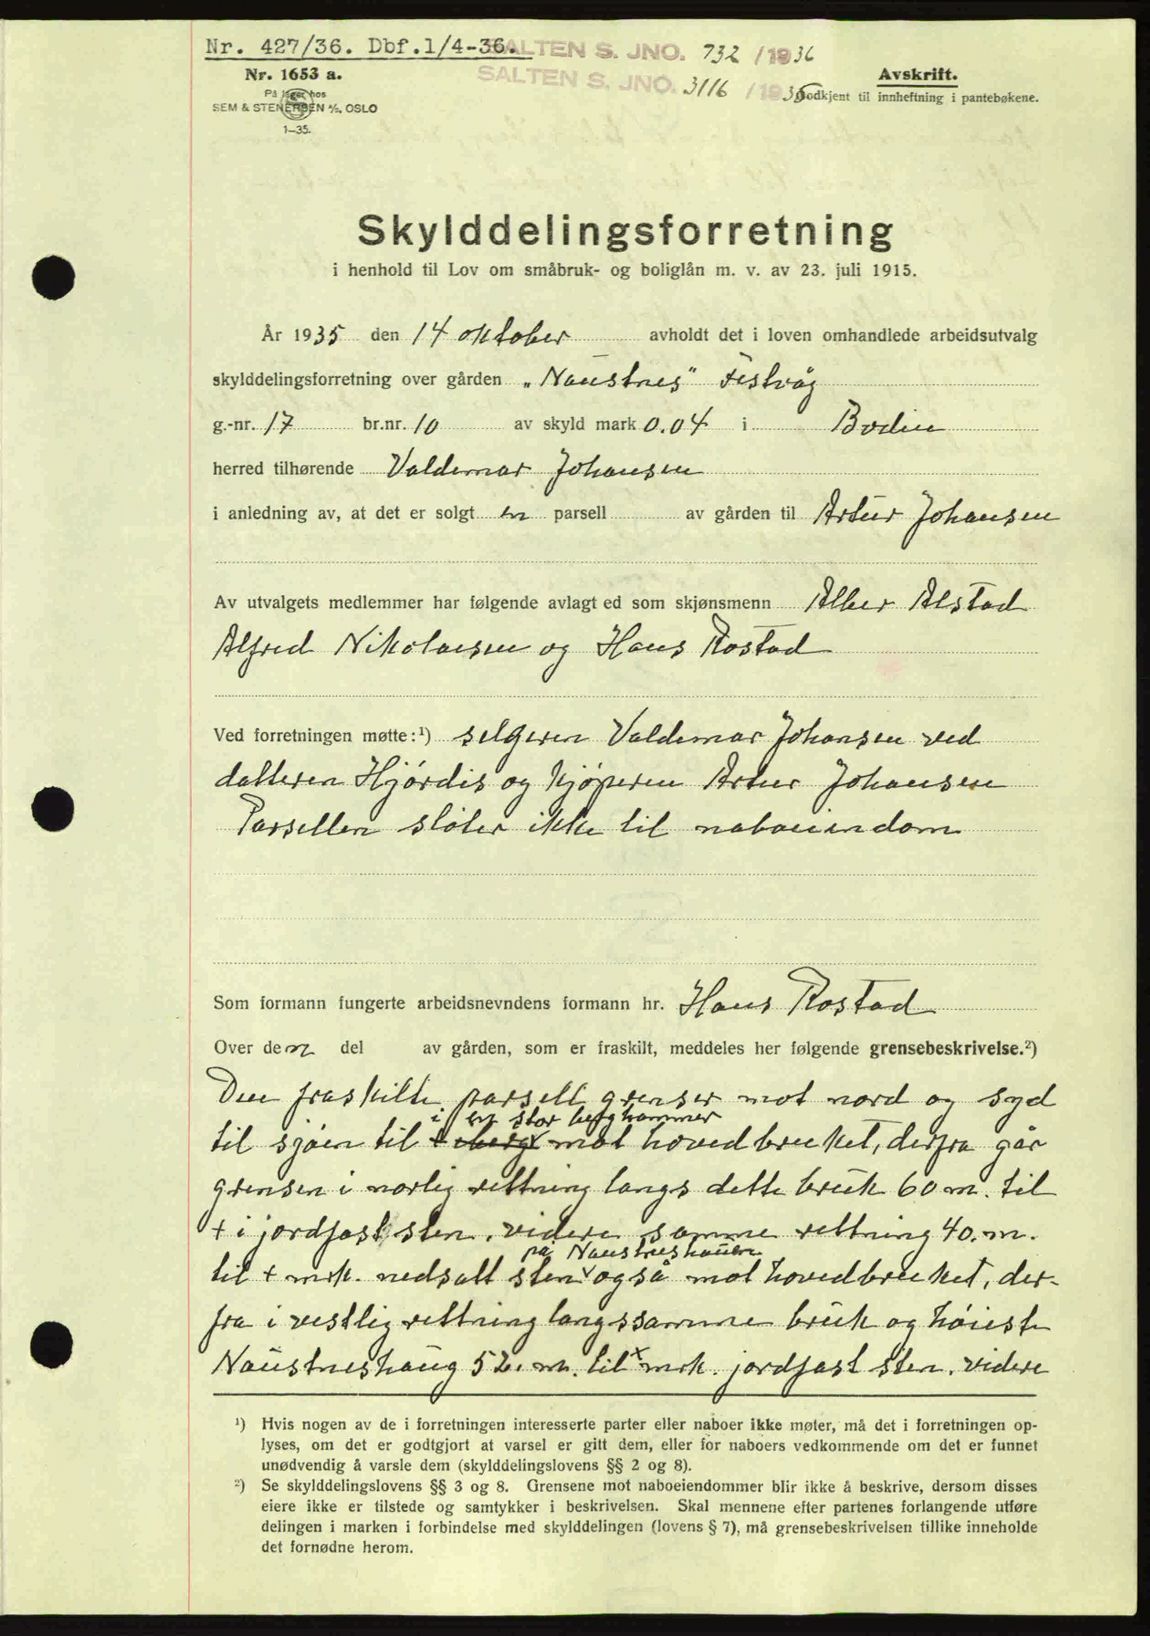 Nr. 427/36. Dbf.1/4-36.
SALTEN S. JNO. 732 /1936
SALTEN S. JNO. 3116 /1935
Nr. 1653 a.
På lager hos
SEM & STENERSEN A/S, OSLO
1—35.
Avskrift.
Godkjent til innheftning i pantebøkene.
Skylddelingsforretning
i henhold til Lov om småbruk- og boliglån m. v. av 23. juli 1915.
År 1935 den 14 oktober avholdt det i loven omhandlede arbeidsutvalg
skylddelingsforretning over gården „Naustnes" Festvåg
g.-nr. 17 br.nr. 10 av skyld mark 0.04 i Bodin
herred tilhørende Valdemar Johansen
i anledning av, at det er solgt en parsell av gården til Artur Johansen
Av utvalgets medlemmer har følgende avlagt ed som skjønsmenn Alber Alstad
Alfred Nikolaisen og Hans Rostad
Ved forretningen møtte:¹) selgeren Valdemar Johansen ved
datteren Hjördis og kjöperen Artur Johansen
Parsellen støter ikke til naboeiendom
Som formann fungerte arbeidsnevndens formann hr. Hans Rostad
Over den del av gården, som er fraskilt, meddeles her følgende grensebeskrivelse.²)
Den fraskilte parsell grenser mot nord og syd
i en stor berghammer
til sjøen til + mot hovedbruket, derfra går
grensen i norlig rettning langs dette bruk 60 m. til
+ i jordfast sten, videre samme rettning 40. m.
på Naustneshauen
til + mrk. nedsatt sten også mot hovedbruket, der-
fra i vestlig rettning langs samme bruk og höieste
Naustneshaug 52. m. til x mrk. jordfast sten. videre
¹) Hvis nogen av de i forretningen interesserte parter eller naboer ikke møter, må det i forretningen op-
lyses, om det er godtgjort at varsel er gitt dem, eller for naboers vedkommende om det er funnet
unødvendig å varsle dem (skylddelingslovens §§ 2 og 8).
²) Se skylddelingslovens §§ 3 og 8. Grensene mot naboeiendommer blir ikke å beskrive, dersom disses
eiere ikke er tilstede og samtykker i beskrivelsen. Skal mennene efter partenes forlangende utføre
delingen i marken i forbindelse med skylddelingen (lovens § 7), må grensebeskrivelsen tillike inneholde
det fornødne herom.